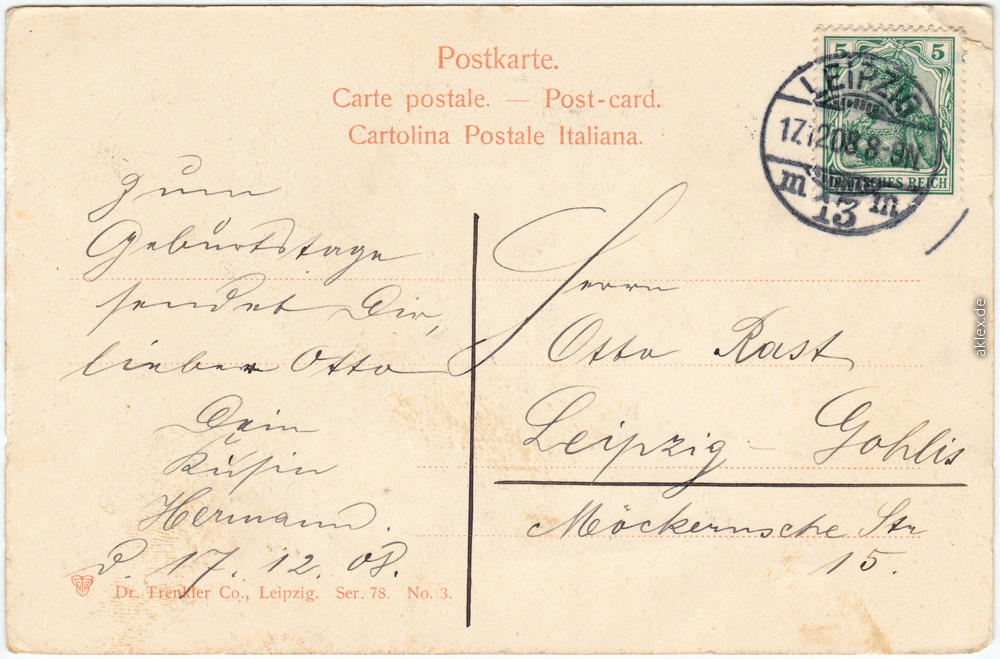 Postkarte.
Carte postale. — Post-card.
Cartolina Postale Italiana.
5 5
DEUTSCHES REICH
LEIPZIG
17.12.08. 8-9N.
m 13 m
Zum
Geburtstage
sendet Dir,
lieber Otto
Dein
Kusin
Hermann.
d. 17. 12. 08.
Herrn
Otto Rast
Leipzig-Gohlis
Möckernsche Str
15.
Dr. Trenkler Co., Leipzig. Ser. 78. No. 3.
aklex.de